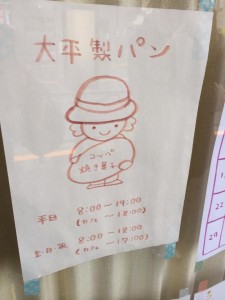 大平製パン
コッペ
焼き菓子
平日 8:00〜19:00
(カフェ 〜18:00)
土.日.祝 8:00〜18:00
(カフェ 〜17:00)
22
29